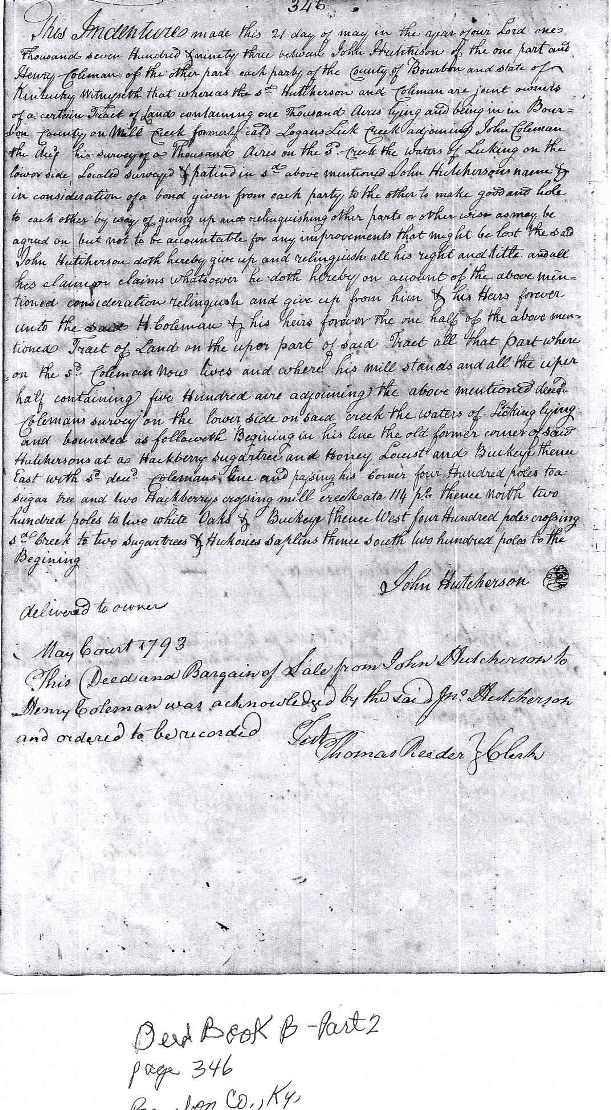 346
This Indenture made this 21 day of may in the year of our Lord one
Thousand seven Hundred & ninety three between John Hutchison of the one part and
Henry Coleman of the other part each party of the County of Bourbon and state of
Kentucky Witnesseth that whereas the sd Hutcherson and Coleman are joint owners
of a certain Tract of Land containing one Thousand Acres lying and being in Bour=
bon County on Mill Creek formerly cald Logans Lick Creek adjoining John Coleman
the his survey of a Thousand Acres on the sd creek the waters of Licking on the
lower side Located surveyd & patind in sd above mentioned John Hutchersons name &
in consideration of a bond given from each party to the other to make good and
to each other by way of giving up and relinquishing other parts or other wise as may be
agred on but not to be accountable for any improvements that might be lost the said
John Hutcherson doth hereby give up and relinquish all his right and title and all
his claim or claims whatsoever he doth hereby on account of the above men=
tioned consideration relinquish and give up from him & his Heirs forever
unto the said H. Coleman & his heirs forever the one half of the above men=
tioned Tract of Land on the uper part of said Tract all that part where
on the sd Coleman now lives and where his mill stands and all the uper
half containing five Hundred acre adjoining the above mentioned decd
Colemans survey on the lower side on said creek the waters of Licking lying
and bounded as followeth Begining in his line the old former corner of said
Hutchersons at a Hackberry sugartree and Honey Locust and Buckeye thence
East with sd decd Colemans line and pasing his corner four Hundred poles to a
sugar tree and two Hackberrys crossing mill creek ata 114 pls thence North two
hundred poles to two white Oaks & Buckeye thence West four Hundred poles crossing
sd Creek to two sugartrees & Hickories saplins thence south two hundred poles to the
Begining
John Hutcherson
delivered to owner
May Court 1793
This Deed and Bargain of Sale from John Hutcherson to
Henry Coleman was acknowledged by the said Jno. Hutcherson
and ordered to be recorded
Thomas Reeder Clerk
Deed Book B - Part 2
page 346
Co., Ky,